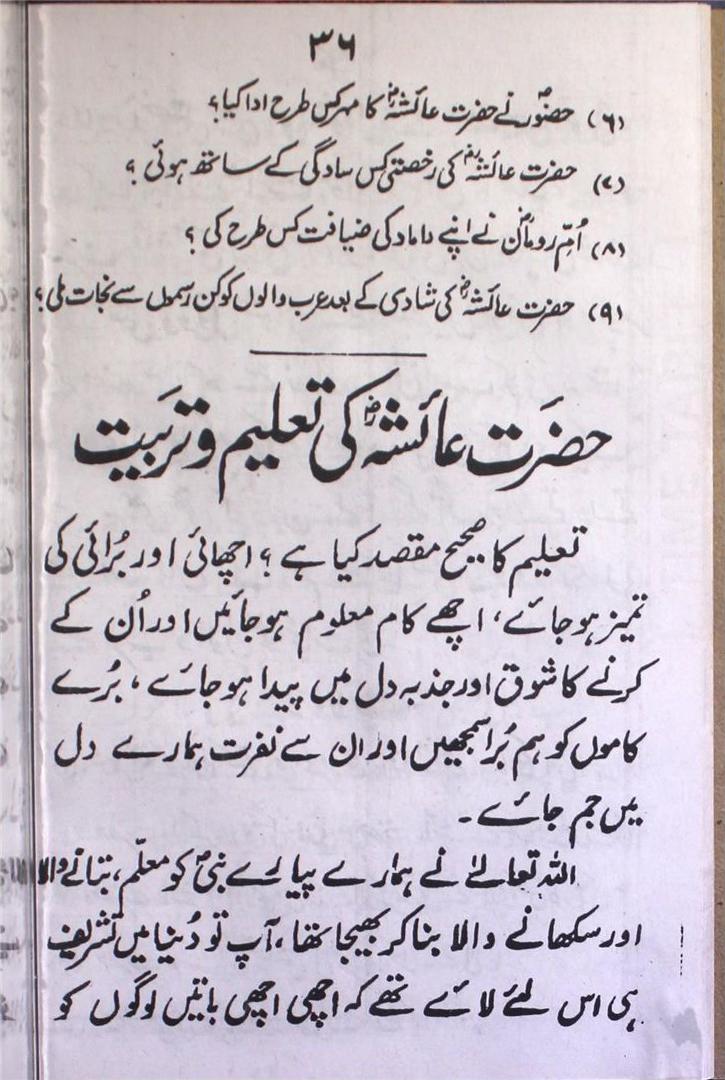 ۳۶
(۶) حضورؐ نے حضرت عائشہؓ کا مہر کس طرح ادا کیا؟
(۷) حضرت عائشہؓ کی رخصتی کس سادگی کے ساتھ ہوئی ؟
(۸) اُمِّ رومانؓ نے اپنے داماد کی ضیافت کس طرح کی ؟
(۹) حضرت عائشہؓ کی شادی کے بعد عرب والوں کو کن رسموں سے نجات ملی؟
حضرَت عائشہؓ کی تعلیم و تربَیت
تعلیم کا صحیح مقصد کیا ہے ؟ اچھائی اور بُرائی کی
تمیز ہو جائے، اچھے کام معلوم ہو جائیں اور اُن کے
کرنے کا شوق اور جذبہ دل میں پیدا ہو جائے ، بُرے
کاموں کو ہم بُرا سمجھیں اور ان سے نفرت ہمارے دل
میں جم جائے ۔
اللہ تعالےٰ نے ہمارے پیارے نبیؐ کو معلّم، بتانے والا
اور سکھانے والا بنا کر بھیجا تھا، آپ تو دُنیا میں تشریف
ہی اس لئے لائے تھے کہ اچھی اچھی باتیں لوگوں کو